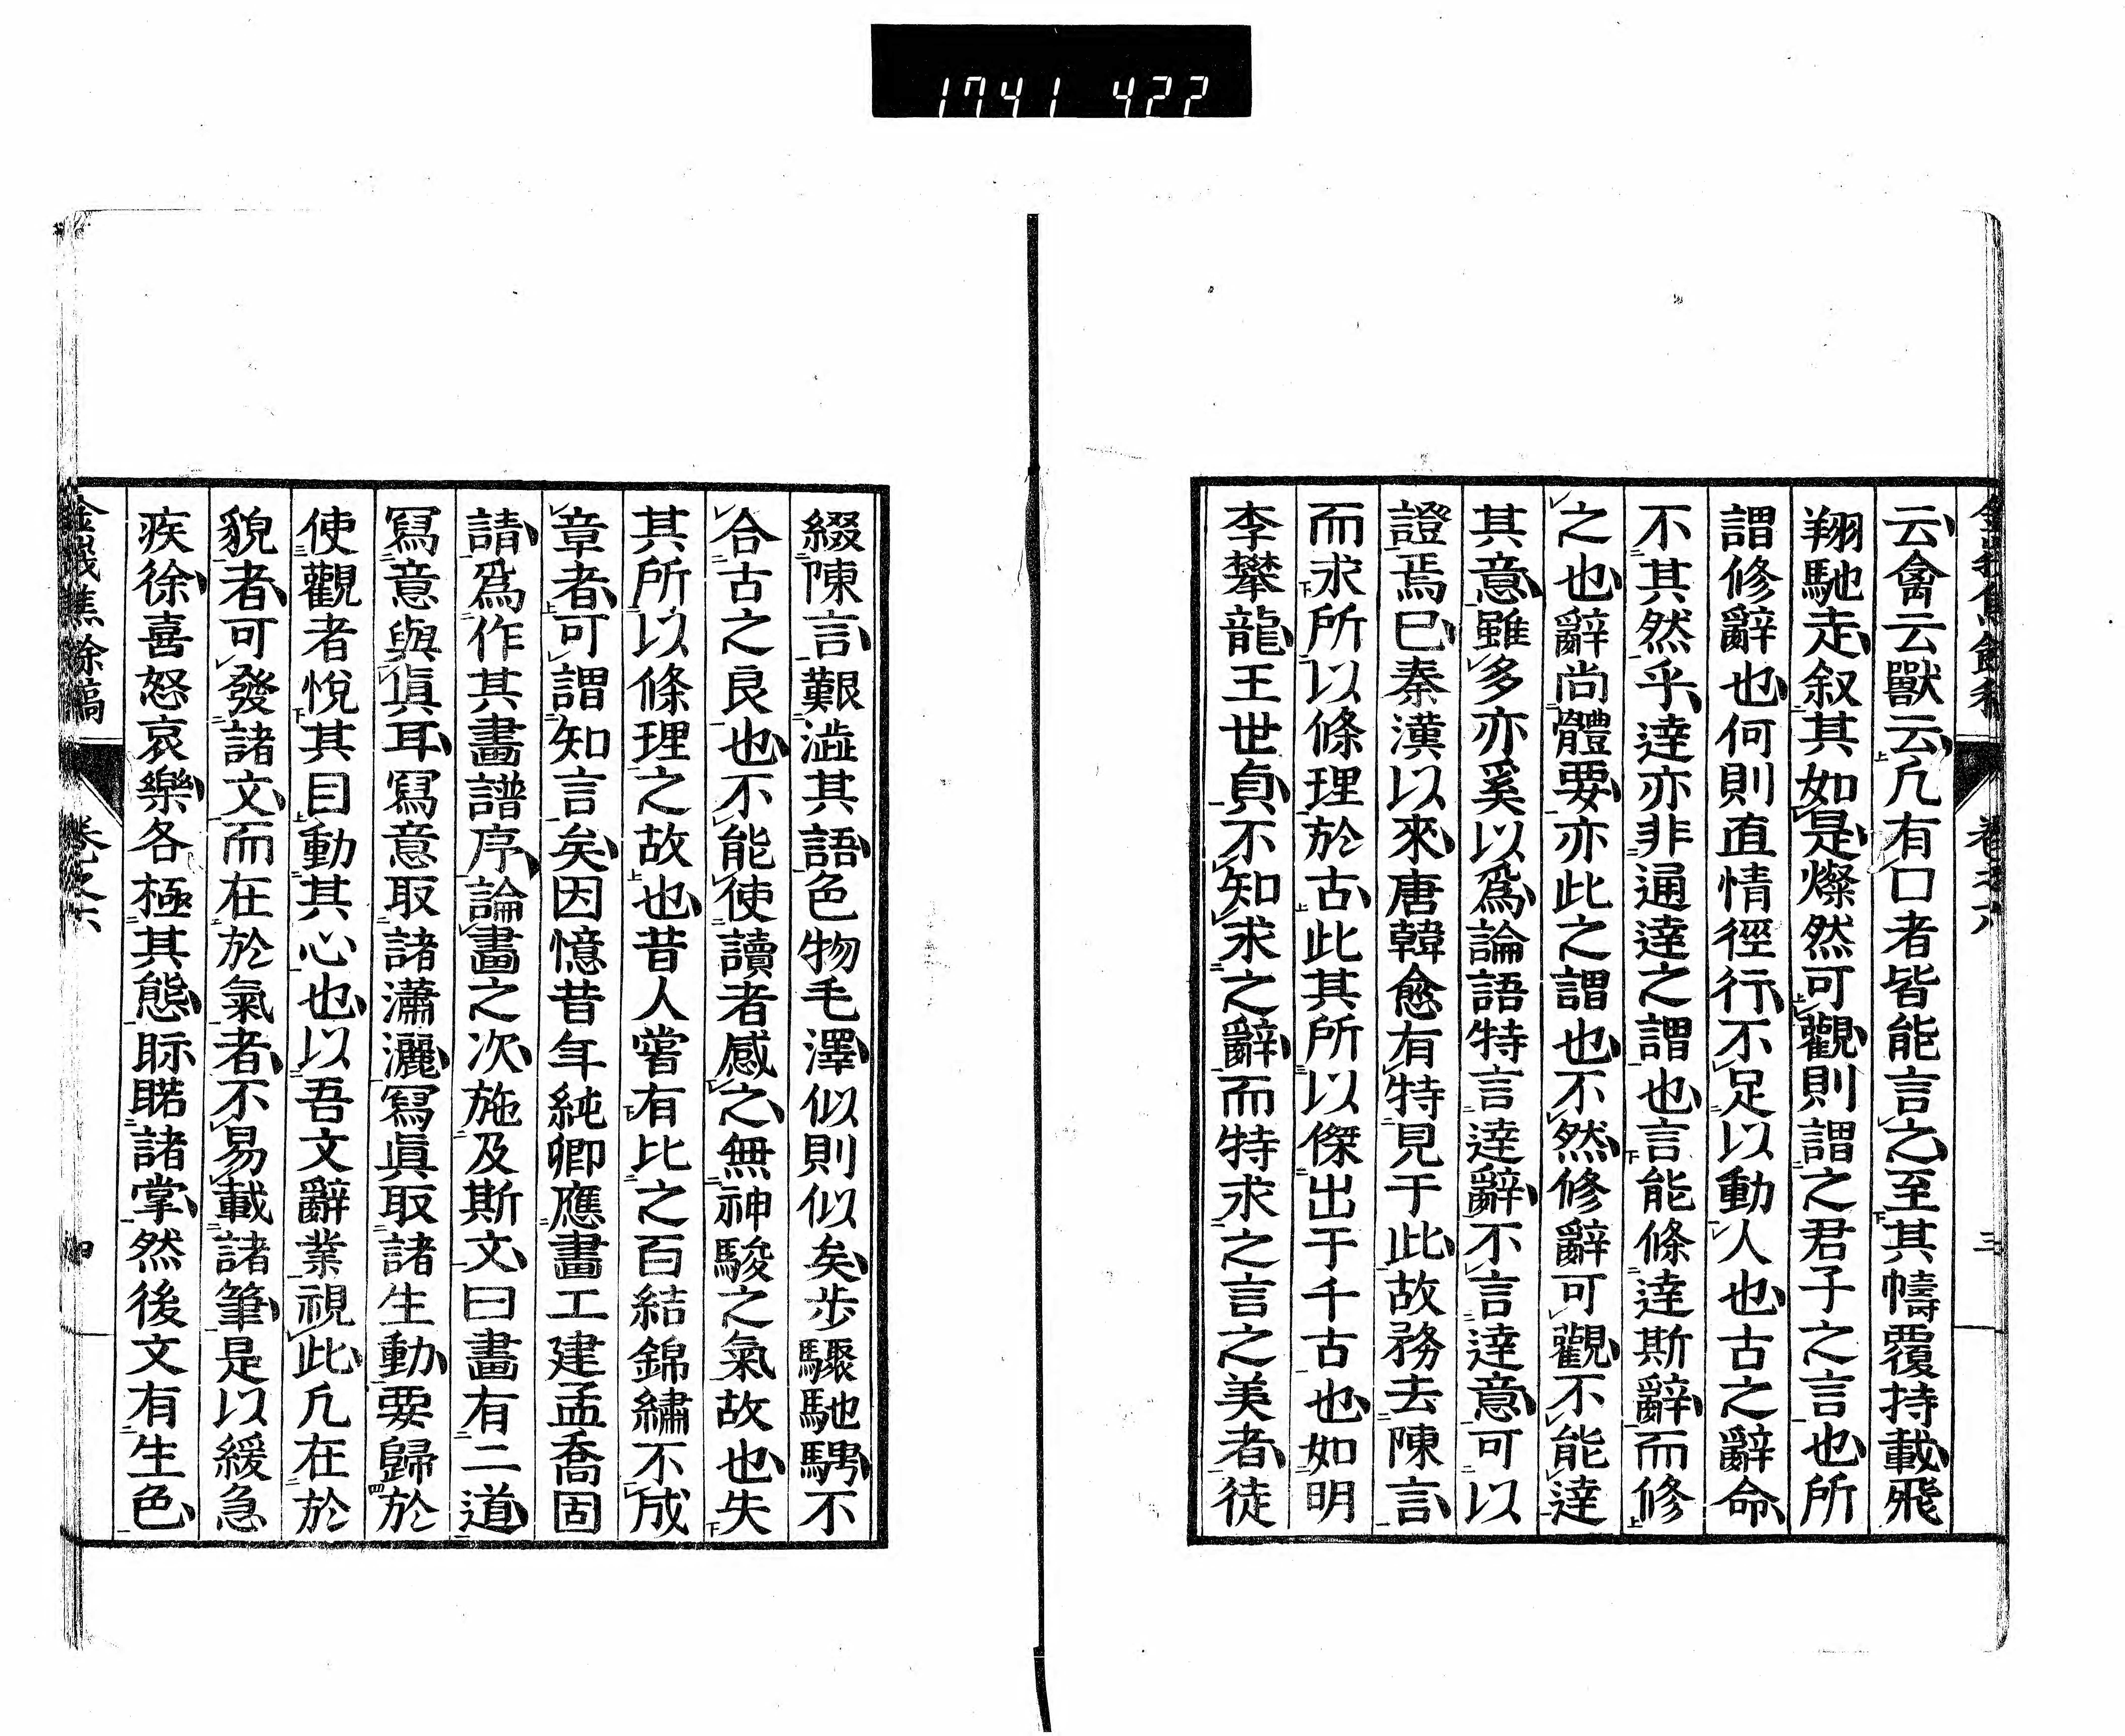 1741 422
云禽云獸云凢有口者皆能言之至其幬覆持載飛
翔馳走叙其如是燦然可觀則謂之君子之言也所
謂修辭也何則直情徑行不足以動人也古之辭命
不其然乎達亦非通達之謂也言能條達斯辭而修
之也辭尚體要亦此之謂也不然修辭可觀不能達
其意雖多亦奚以爲論語特言達辭不言達意可以
證焉已秦漢以來唐韓愈有特見于此故務去陳言
而求所以條理於古此其所以傑出于千古也如明
李攀龍王世貞不知求之辭而特求之言之美者徒
綴陳言艱澁其語色物毛澤似則似矣步驟馳騁不
合古之良也不能使讀者感之無神駿之氣故也失
其所以條理之故也昔人嘗有比之百結錦繡不成
章者可謂知言矣因憶昔年純卿應畫工建孟喬固
請爲作其畫譜序論畫之次施及斯文曰畫有二道
寫意與眞耳寫意取諸瀟灑寫眞取諸生動要歸於
使觀者悅其目動其心也以吾文辭業視此凢在於
貌者可發諸文而在於氣者不易載諸筆是以緩急
疾徐喜怒哀樂各極其態眎睰諸掌然後文有生色
卷之六